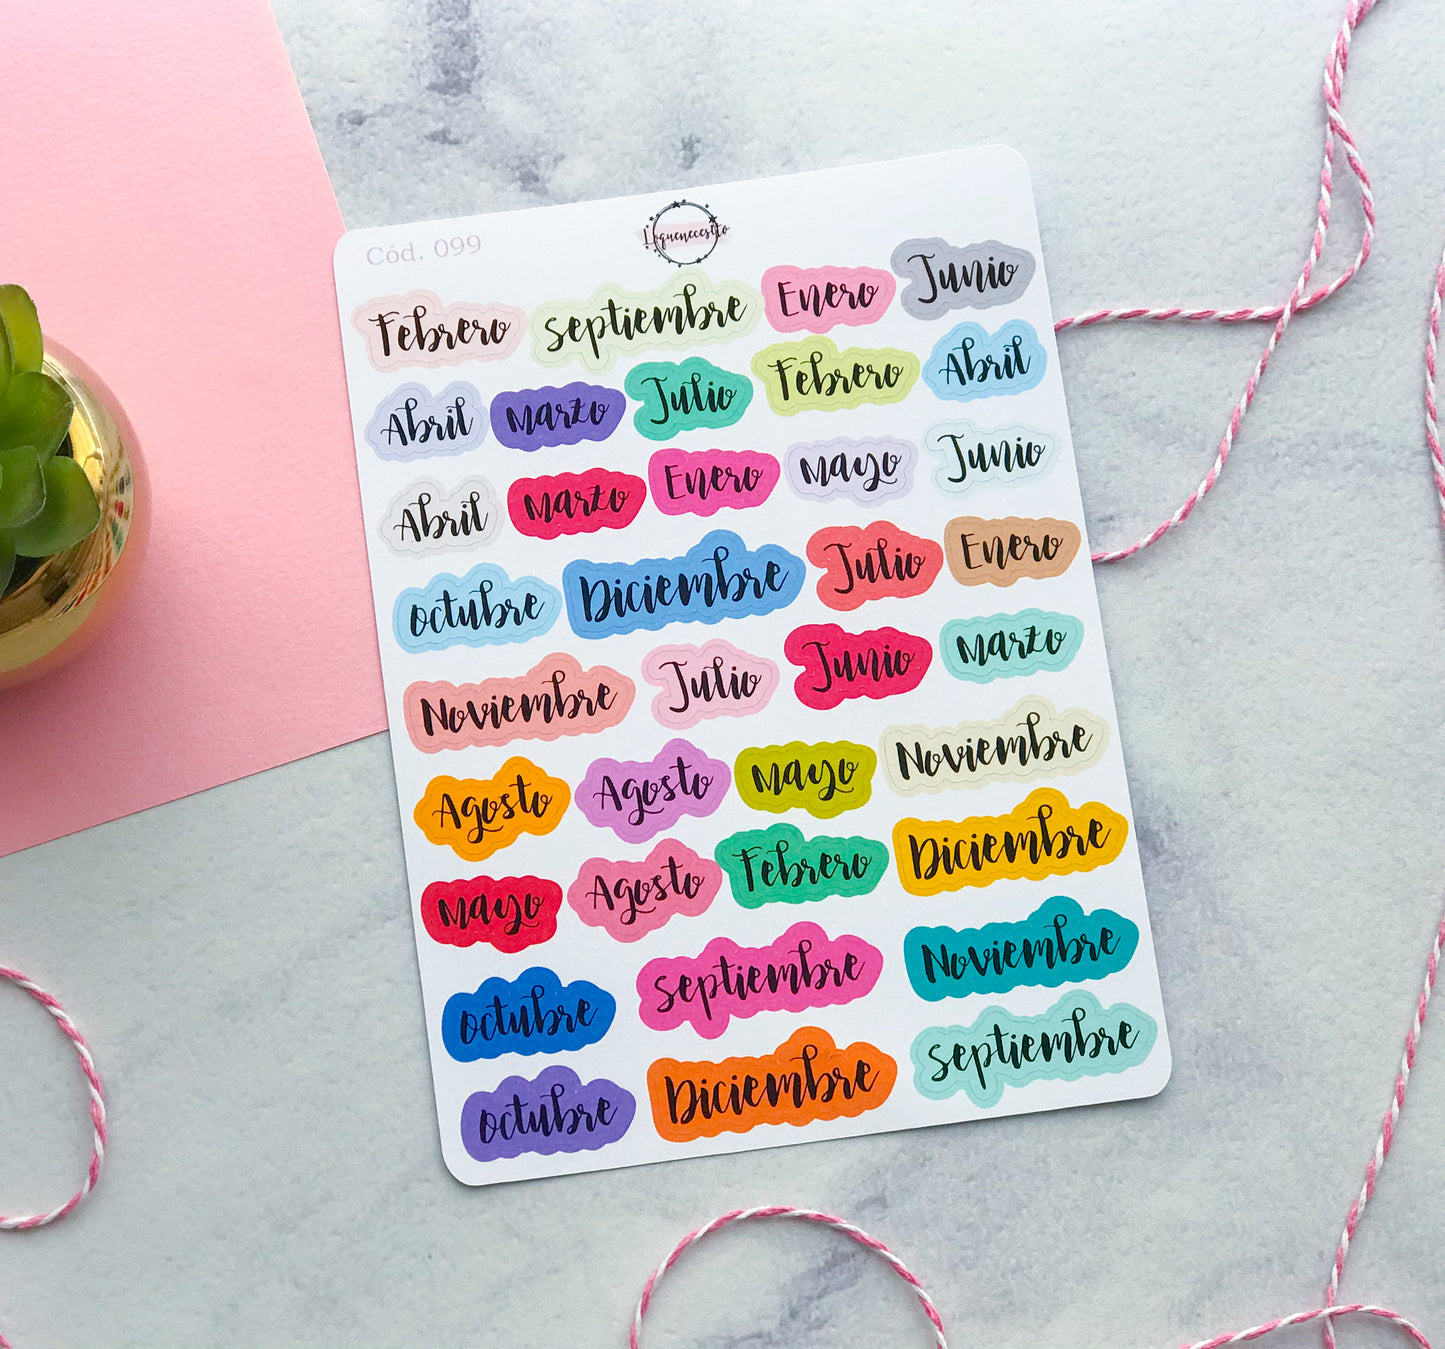 Cód. 099
Loquenecesito
Febrero septiembre Enero Junio
Abril Marzo Julio Febrero Abril
Abril Marzo Enero Mayo Junio
octubre Diciembre Julio Enero
Noviembre Julio Junio Marzo
Agosto Agosto Mayo Noviembre
Mayo Agosto Febrero Diciembre
octubre septiembre Noviembre
octubre Diciembre septiembre